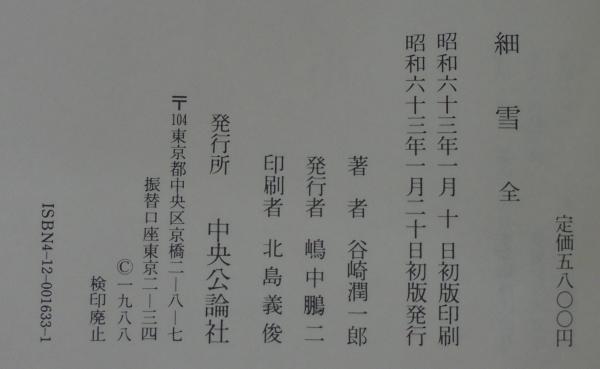 定価五八〇〇円
細雪 全
昭和六十三年一月 十 日初版印刷
昭和六十三年一月二十日初版発行
著 者 谷崎潤一郎
発行者 嶋中鵬二
印刷者 北島義俊
発行所 中央公論社
〒104東京都中央区京橋二―八―七
振替口座東京二―三四
©一九八八
検印廃止
ISBN4-12-001633-1